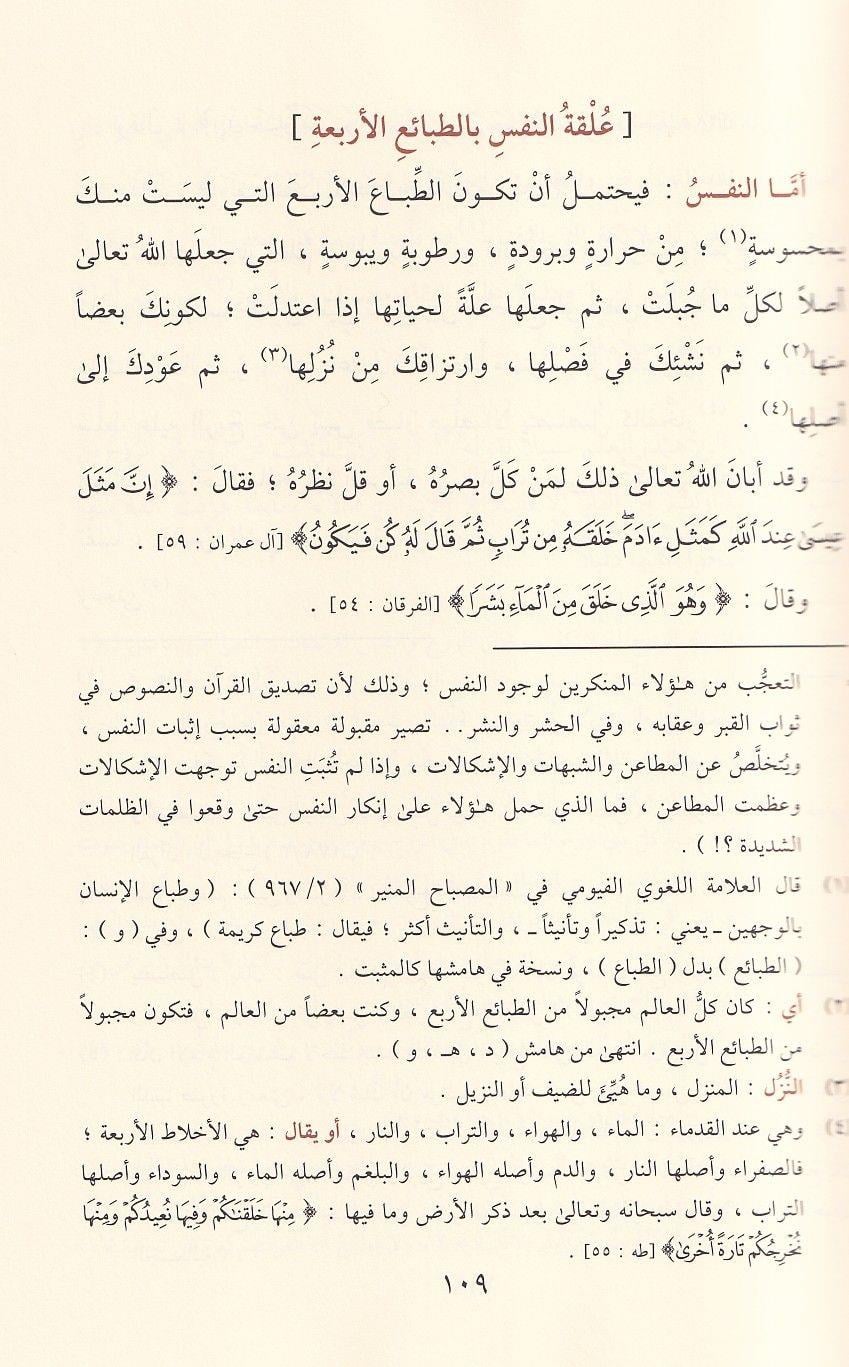 [ عُلْقةُ النفسِ بالطبائعِ الأربعةِ ]
أمَّا النفسُ : فيحتملُ أنْ تكونَ الطِّباعَ الأربعَ التي ليسَتْ منكَ
بمحسوسةٍ(١) ؛ مِنْ حرارةٍ وبرودةٍ ، ورطوبةٍ ويبوسةٍ ، التي جعلَها اللهُ تعالىٰ
أصلاً لكلِّ ما جُبلَتْ ، ثم جعلَها علَّةً لحياتِها إذا اعتدلَتْ ؛ لكونِكَ بعضاً
منها(٢) ، ثم نَشْئِكَ في فَصْلِها ، وارتزاقِكَ مِنْ نُزُلِها(٣) ، ثم عَوْدِكَ إلىٰ
أصلِها(٤) .
وقد أبانَ اللهُ تعالىٰ ذلكَ لمَنْ كَلَّ بصرُهُ ، أو قلَّ نظرُهُ ؛ فقالَ : ﴿ إِنَّ مَثَلَ
عِيسَىٰ عِندَ ٱللَّهِ كَمَثَلِ ءَادَمَ ۖ خَلَقَهُۥ مِن تُرَابٍ ثُمَّ قَالَ لَهُۥ كُن فَيَكُونُ﴾ [آل عمران : ٥٩] .
وقالَ : ﴿ وَهُوَ ٱلَّذِى خَلَقَ مِنَ ٱلْمَآءِ بَشَرًا﴾ [الفرقان : ٥٤] .
التعجُّب من هـٰؤلاء المنكرين لوجود النفس ؛ وذلك لأن تصديق القرآن والنصوص في
ثواب القبر وعقابه ، وفي الحشر والنشر.. تصير مقبولة معقولة بسبب إثبات النفس ،
ويُتخلَّصُ عن المطاعن والشبهات والإشكالات ، وإذا لم تُثبَتِ النفس توجهت الإشكالات
وعظمت المطاعن ، فما الذي حمل هـٰؤلاء علىٰ إنكار النفس حتىٰ وقعوا في الظلمات
الشديدة ؟! ) .
(١) قال العلامة اللغوي الفيومي في « المصباح المنير » ( ٩٦٧/٢ ) : ( وطباع الإنسان
بالوجهين ـ يعني : تذكيراً وتأنيثاً ـ ، والتأنيث أكثر ؛ فيقال : طباع كريمة ) ، وفي ( و ) :
( الطبائع ) بدل ( الطباع ) ، ونسخة في هامشها كالمثبت .
(٢) أي : كان كلُّ العالم مجبولاً من الطبائع الأربع ، وكنت بعضاً من العالم ، فتكون مجبولاً
من الطبائع الأربع . انتهىٰ من هامش ( د ، هـ ، و ) .
(٣) النُّزُل : المنزل ، وما هُيِّئَ للضيف أو النزيل .
(٤) وهي عند القدماء : الماء ، والهواء ، والتراب ، والنار ، أو يقال : هي الأخلاط الأربعة ؛
فالصفراء وأصلها النار ، والدم وأصله الهواء ، والبلغم وأصله الماء ، والسوداء وأصلها
التراب ، وقال سبحانه وتعالىٰ بعد ذكر الأرض وما فيها : ﴿ مِنْهَا خَلَقْنَٰكُمْ وَفِيهَا نُعِيدُكُمْ وَمِنْهَا
نُخْرِجُكُمْ تَارَةً أُخْرَىٰ﴾ [طه : ٥٥] .
١٠٩